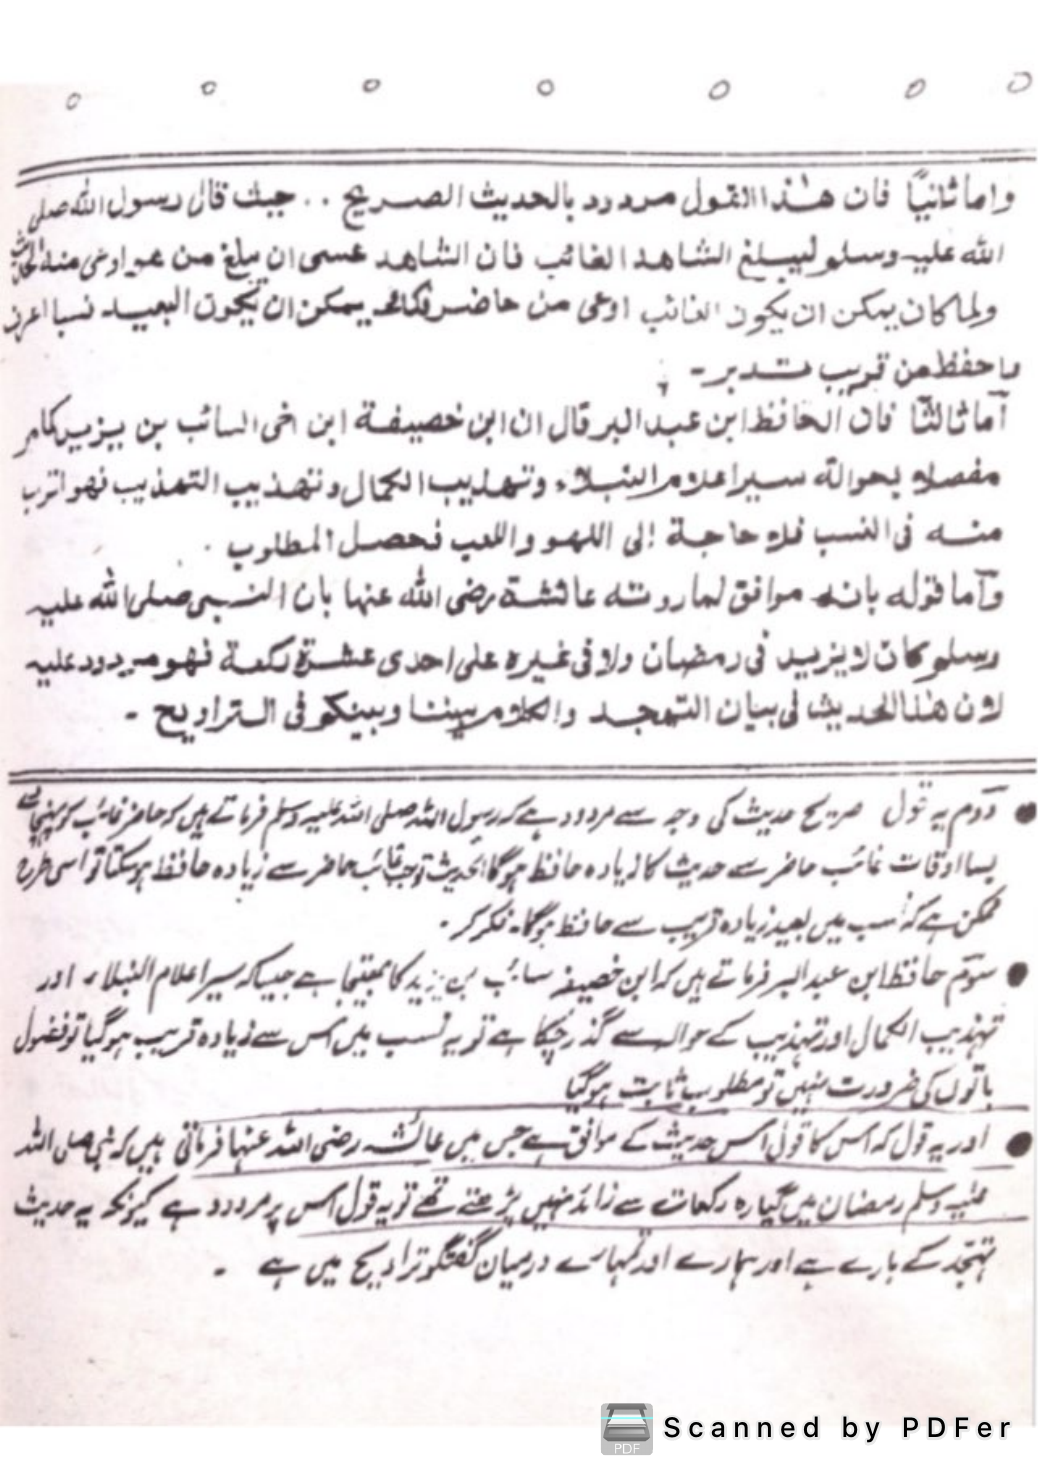 واما ثانيًا فان هٰذا القول مردود بالحديث الصريح .. حيث قال رسول الله صلى
الله عليه وسلم ليبلغ الشاهد الغائب فان الشاهد عسى ان يبلغ من هو اوعى منه
ولما كان يمكن ان يكون الغائب اوعى من حاضر فكذالك يمكن ان يكون البعيد نسبا اعرف
واحفظ من قريب تدبر -
اما ثالثًا فان الحافظ ابن عبد البر قال ان ابن خصيفة ابن اخى السائب بن يزيد كما مر
مفصلا بحوالة سير اعلام النبلاء وتهذيب الكمال وتهذيب التهذيب فهو اقرب
منه فى النسب فلا حاجة إلى اللهو واللعب فحصل المطلوب .
وآما قوله بانه موافق لما روته عائشة رضى الله عنها بان النبى صلى الله عليه
وسلم كان لا يزيد فى رمضان ولا فى غيره على احدى عشرة ركعة فهو مردود عليه
لان هٰذا الحديث فى بيان التهجد والكلام بيننا وبينكم فى التراويح -
● دوم یہ قول صریح حدیث کی وجہ سے مردود ہے کہ رسول اللہ صلی اللہ علیہ وسلم فرماتے ہیں کہ حاضر غائب کو پہنچائے
بسا اوقات غائب حاضر سے حدیث کا زیادہ حافظ ہوگا الحدیث توجب غائب حاضر سے زیادہ حافظ ہوسکتا تو اسی طرح
ممکن ہے کہ نسب میں بعید زیادہ قریب سے حافظ ہوگا۔ فکر کر -
● سوم حافظ ابن عبد البر فرماتے ہیں کہ ابن خصیفہ سائب بن یزید کا بھتیجا ہے جیسا کہ سیر اعلام النبلاء اور
تہذیب الکمال اور تہذیب کے حوالے سے گذر چکا ہے تو یہ نسب میں اس سے زیادہ قریب ہوگیا تو فضول
باتوں کی ضرورت نہیں تو مطلوب ثابت ہوگیا
● اور یہ قول کہ اس کا قول اس حدیث کے موافق ہے جس میں عائشہ رضی اللہ عنہا فرماتی ہیں کہ نبی صلی اللہ
علیہ وسلم رمضان میں گیارہ رکعات سے زائد نہیں پڑھتے تھے تو یہ قول اس پر مردود ہے کیونکہ یہ حدیث
تہجّد کے بارے ہے اور ہمارے اور تمہارے درمیان گفتگو تراویح میں ہے -
PDF
Scanned by PDFer